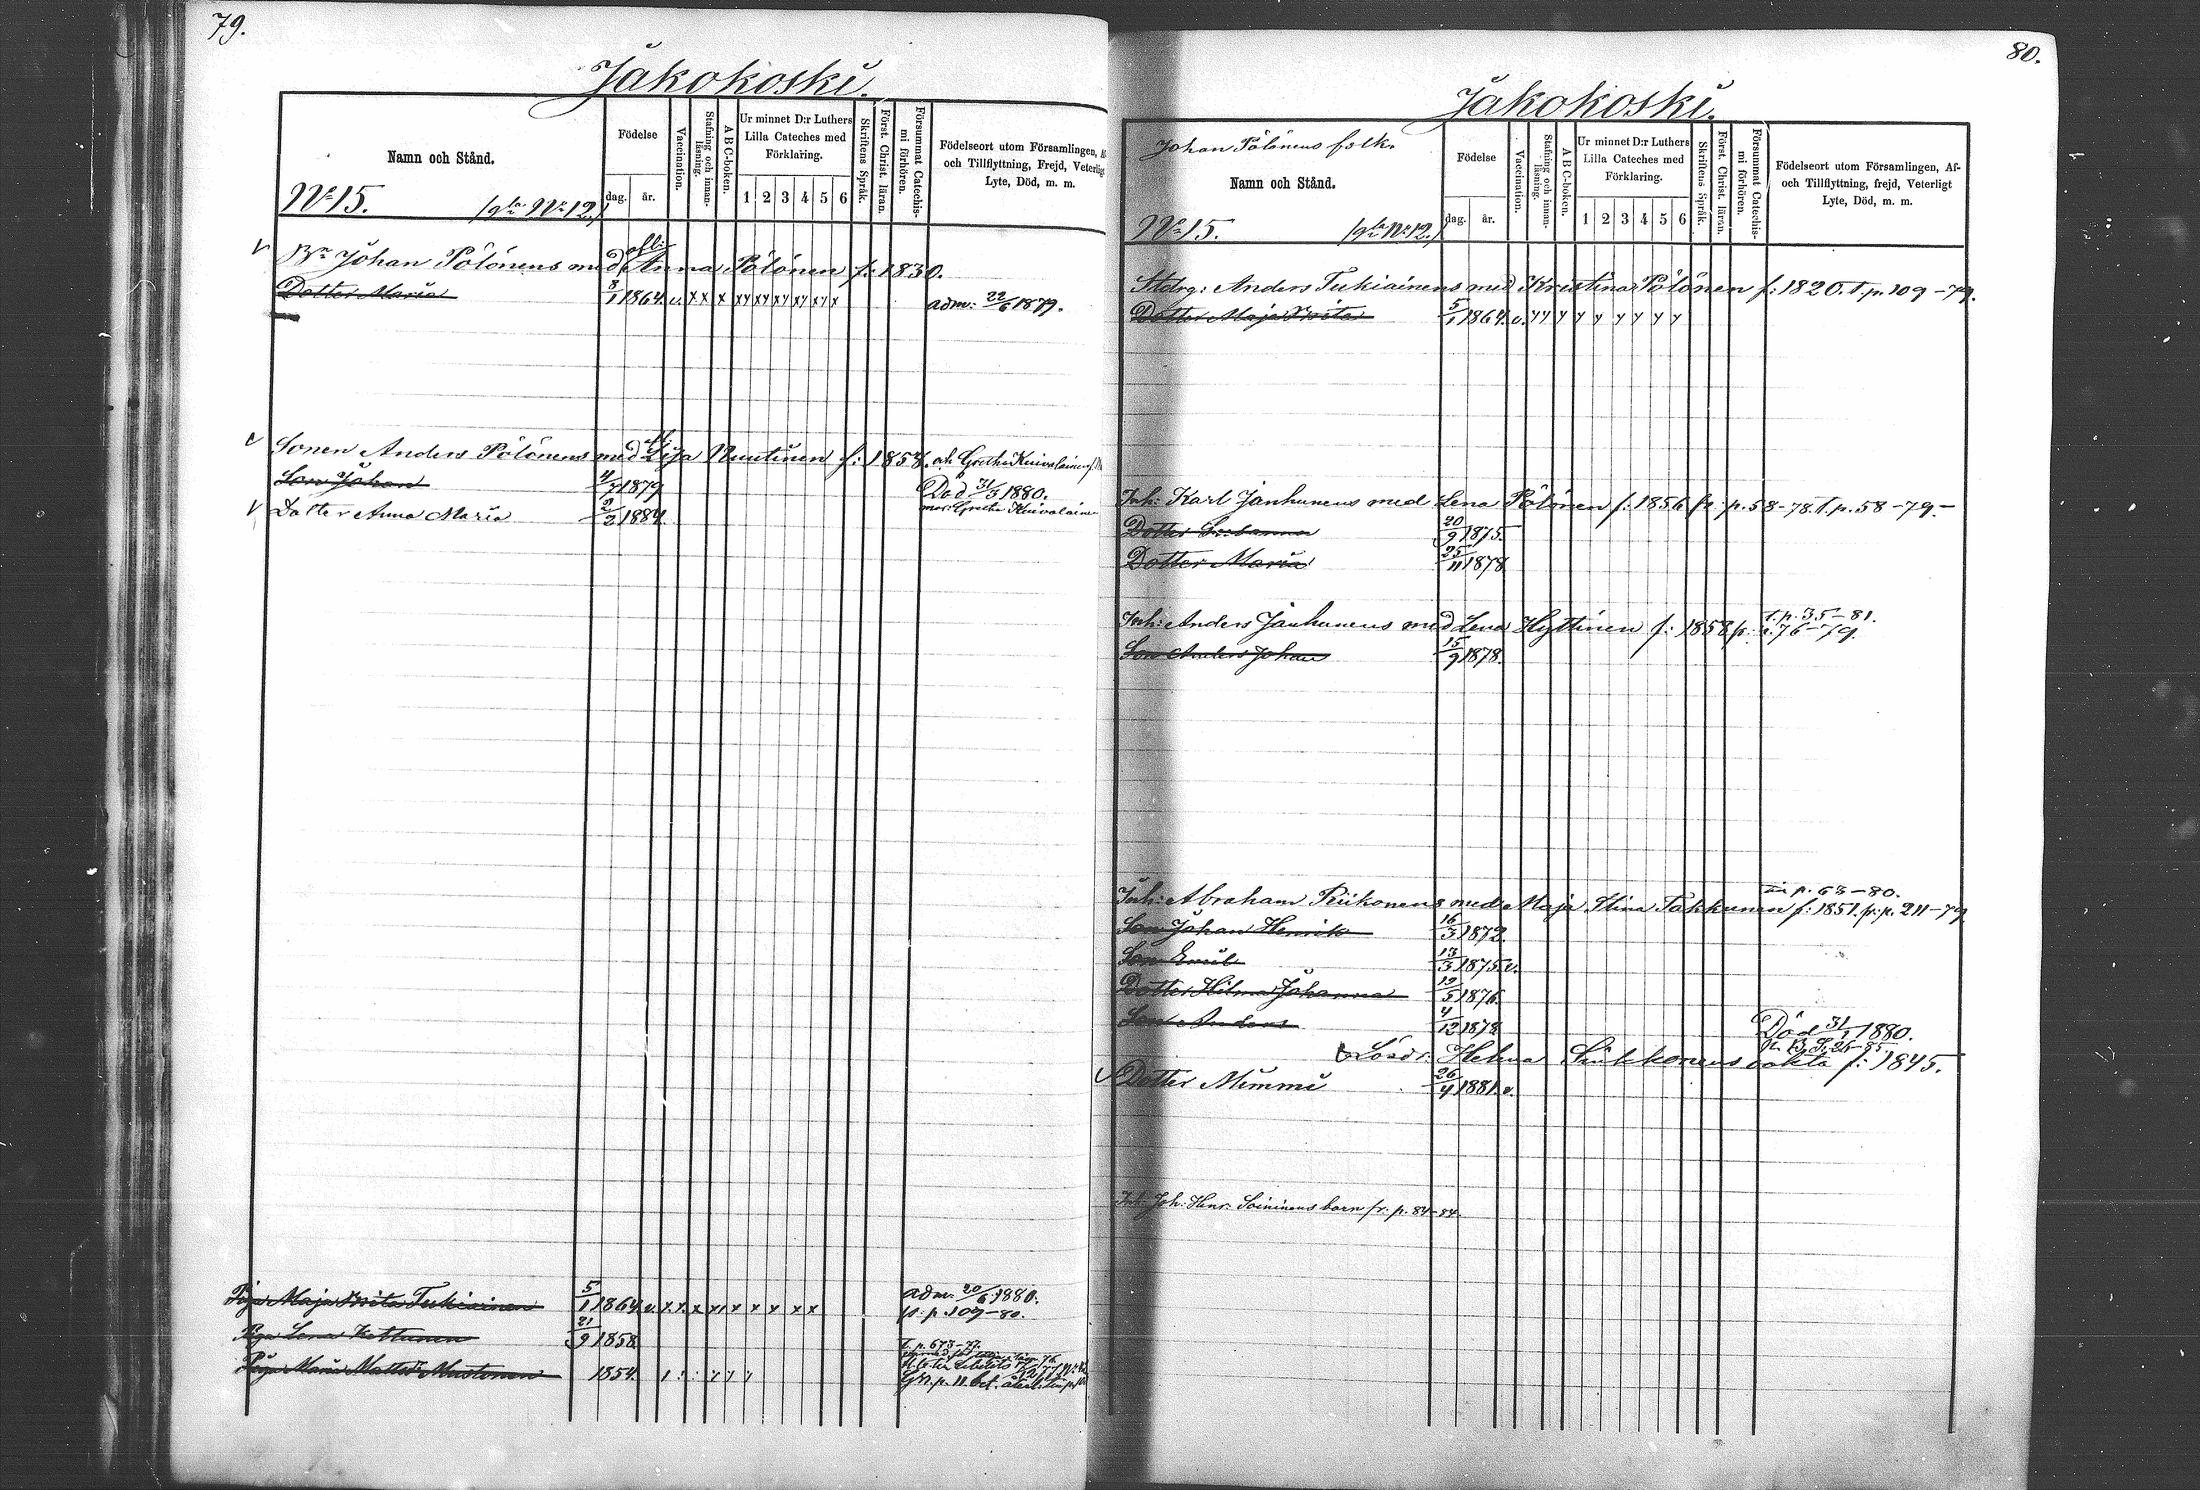 79.
Jakokoski.
Namn och Stånd.
Födelse
dag.
år.
Vaccination.
Stafning och innanläsning.
ABC-boken.
Ur minnet D:r Luthers
Lilla Cateches med
Förklaring.
1 2 3 4 5 6
Skriftens Språk.
Först. Christ. läran.
Försummat Catechismi förhören.
Födelseort utom Församlingen, Af-
och Tillflyttning, Frejd, Veterligt
Lyte, Död, m. m.
No 15. (gla No 12.)
Bn Johan Pölönens med afl: Anna Pölönen f: 1830.
Dotter Maria 8/1 1864. v. x x x xy xy xy xy xy x adm: 22/6 1879.
Sonen Anders Pölönens med afl. Lisa Nuutinen f: 1857. och Gretha Kuivalainen
Son Johan 4/7 1879 Död 31/5 1880.
Dotter Anna Maria 2/2 1884. mor: Gretha Kuivalainen
Piga Maja Brita Tukiainen 5/1 1864 v. x x x x x x x x x adm: 20/6 1880.
fr: p. 109-80.
Piga Lena Kettunen 21/9 1858
t. p. 673-77.
Piga Maria Mattsdr Mustonen 1854.
80.
Jakokoski.
Johan Pölönens folk.
Namn och Stånd.
Födelse
dag.
år.
Vaccination.
Stafning och innanläsning.
ABC-boken.
Ur minnet D:r Luthers
Lilla Cateches med
Förklaring.
1 2 3 4 5 6
Skriftens Språk.
Först. Christ. läran.
Försummat Catechismi förhören.
Födelseort utom Församlingen, Af-
och Tillflyttning, frejd, Veterligt
Lyte, Död, m. m.
No 15. (gla No 12.)
Stdrg: Anders Tukiainens med Kristina Pölönen f: 1820. t. p. 109-79.
Dotter Maja Brita 5/1 1864. v. y y y y y y y y y
Inh: Karl Janhunens med Lena Pölönen f: 1856 fr: p. 58-78. t. p. 58-79.-
Dotter Susanna 20/9 1875.
Dotter Maria 25/11 1878
t. p. 35-81.
Inh: Anders Janhunens med Lena Hyttinen f: 1858 fr: p. 76-79.
Son Anders Johan 15/9 1878.
in p. 63-80.
Inh: Abraham Riikonens med Maja Stina Takkunen f: 1851. fr: p. 211-79
Son Johan Henrik 16/3 1872.
Son Emil 13/3 1875 v.
Dotter Hilma Johanna 19/5 1876.
Son Anders 4/12 1878 Död 31/1 1880.
Lösdr: Helena Sinkkonens oäkta f: 1845.
Dotter Mimmi 26/4 1881. v.
Inh: Joh: Henr: Soininens barn fr: p. 84-84.